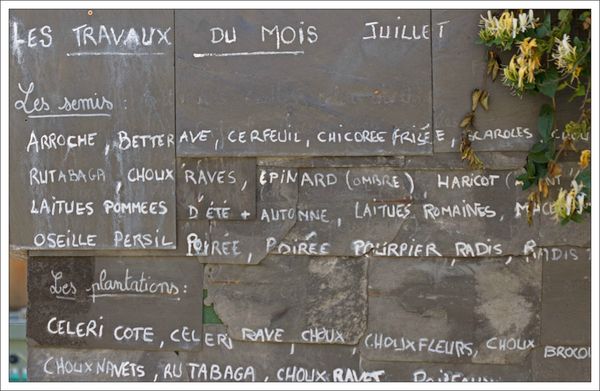 LES TRAVAUX DU MOIS JUILLET
Les semis :
ARROCHE, BETTERAVE, CERFEUIL, CHICOREE FRISÉE, SCAROLES
RUTABAGA, CHOUX RAVES, EPINARD (OMBRE), HARICOT
LAITUES POMMEES D'ÉTÉ + AUTONNE, LAITUES ROMAINES,
OSEILLE PERSIL POIRÉE, POIRÉE POURPIER, RADIS, RADIS
Les plantations :
CELERI COTE, CELERI RAVE, CHOUX CHOUX FLEURS, CHOUX
CHOUX NAVETS, RUTABAGA, CHOUX RAVET